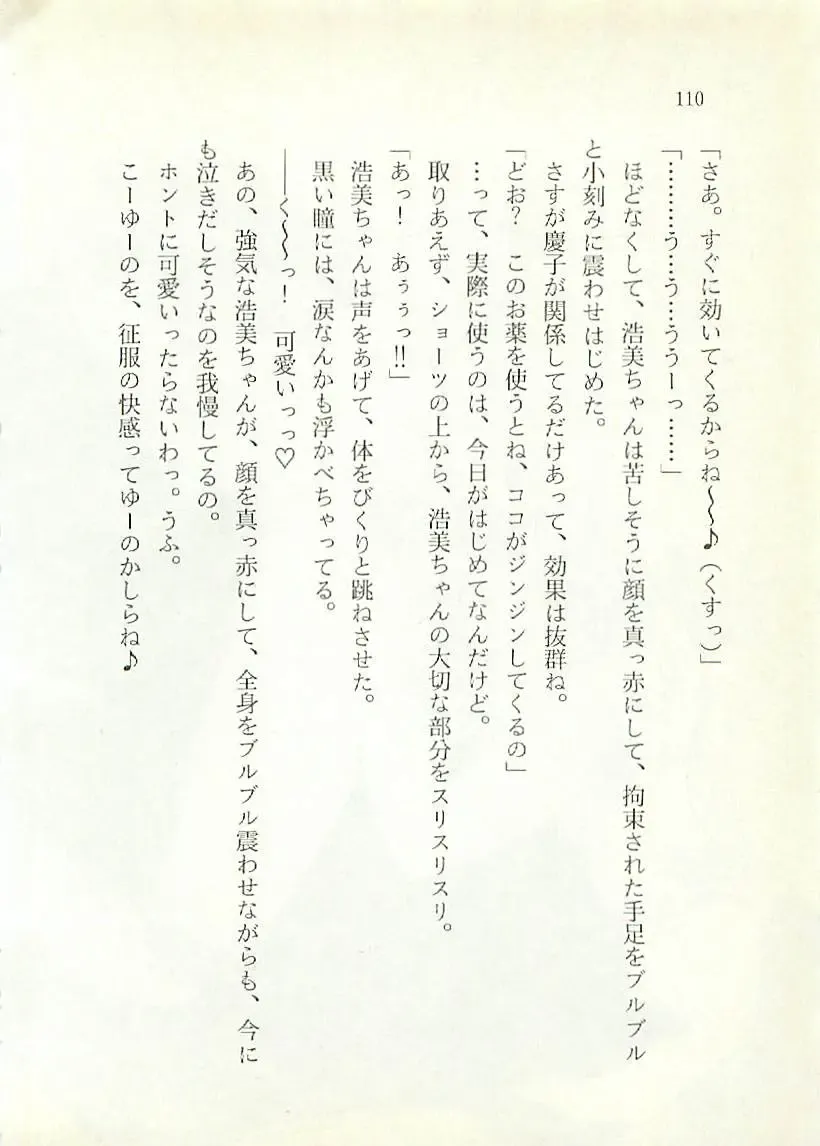 110
「さあ。すぐに効いてくるからね〜〜♪（くすっ）」
「………う…う…ううーっ……」
ほどなくして、浩美ちゃんは苦しそうに顔を真っ赤にして、拘束された手足をブルブル
と小刻みに震わせはじめた。
さすが慶子が関係してるだけあって、効果は抜群ね。
「どお？　このお薬を使うとね、ココがジンジンしてくるの」
…って、実際に使うのは、今日がはじめてなんだけど。
取りあえず、ショーツの上から、浩美ちゃんの大切な部分をスリスリスリ。
「あっ！　あぅぅっ!!」
浩美ちゃんは声をあげて、体をびくりと跳ねさせた。
黒い瞳には、涙なんかも浮かべちゃってる。
――く〜〜っ！　可愛いっっ♡
あの、強気な浩美ちゃんが、顔を真っ赤にして、全身をブルブル震わせながらも、今に
も泣きだしそうなのを我慢してるの。
ホントに可愛いったらないわっ。うふ。
こーゆーのを、征服の快感ってゆーのかしらね♪